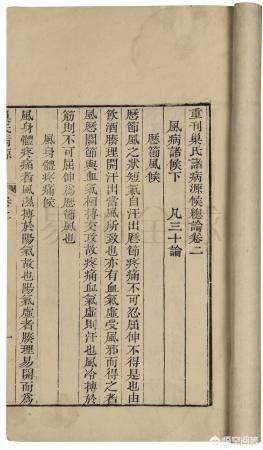 重刊巢氏諸病源候總論卷二
風病諸候下 凡三十論
歷節風候
歷節風之狀短氣自汗出歷節疼痛不可忍屈伸不得是也由
飲酒腠理開汗出當風所致也亦有血氣虛受風邪而得之者
風歷關節與血氣相搏交攻故疼痛血氣虛則汗也風冷搏於
筋則不可屈伸爲歷節風也
風身體疼痛候
風身體疼痛者風濕搏於陽氣故也陽氣虛者腠理易開而爲